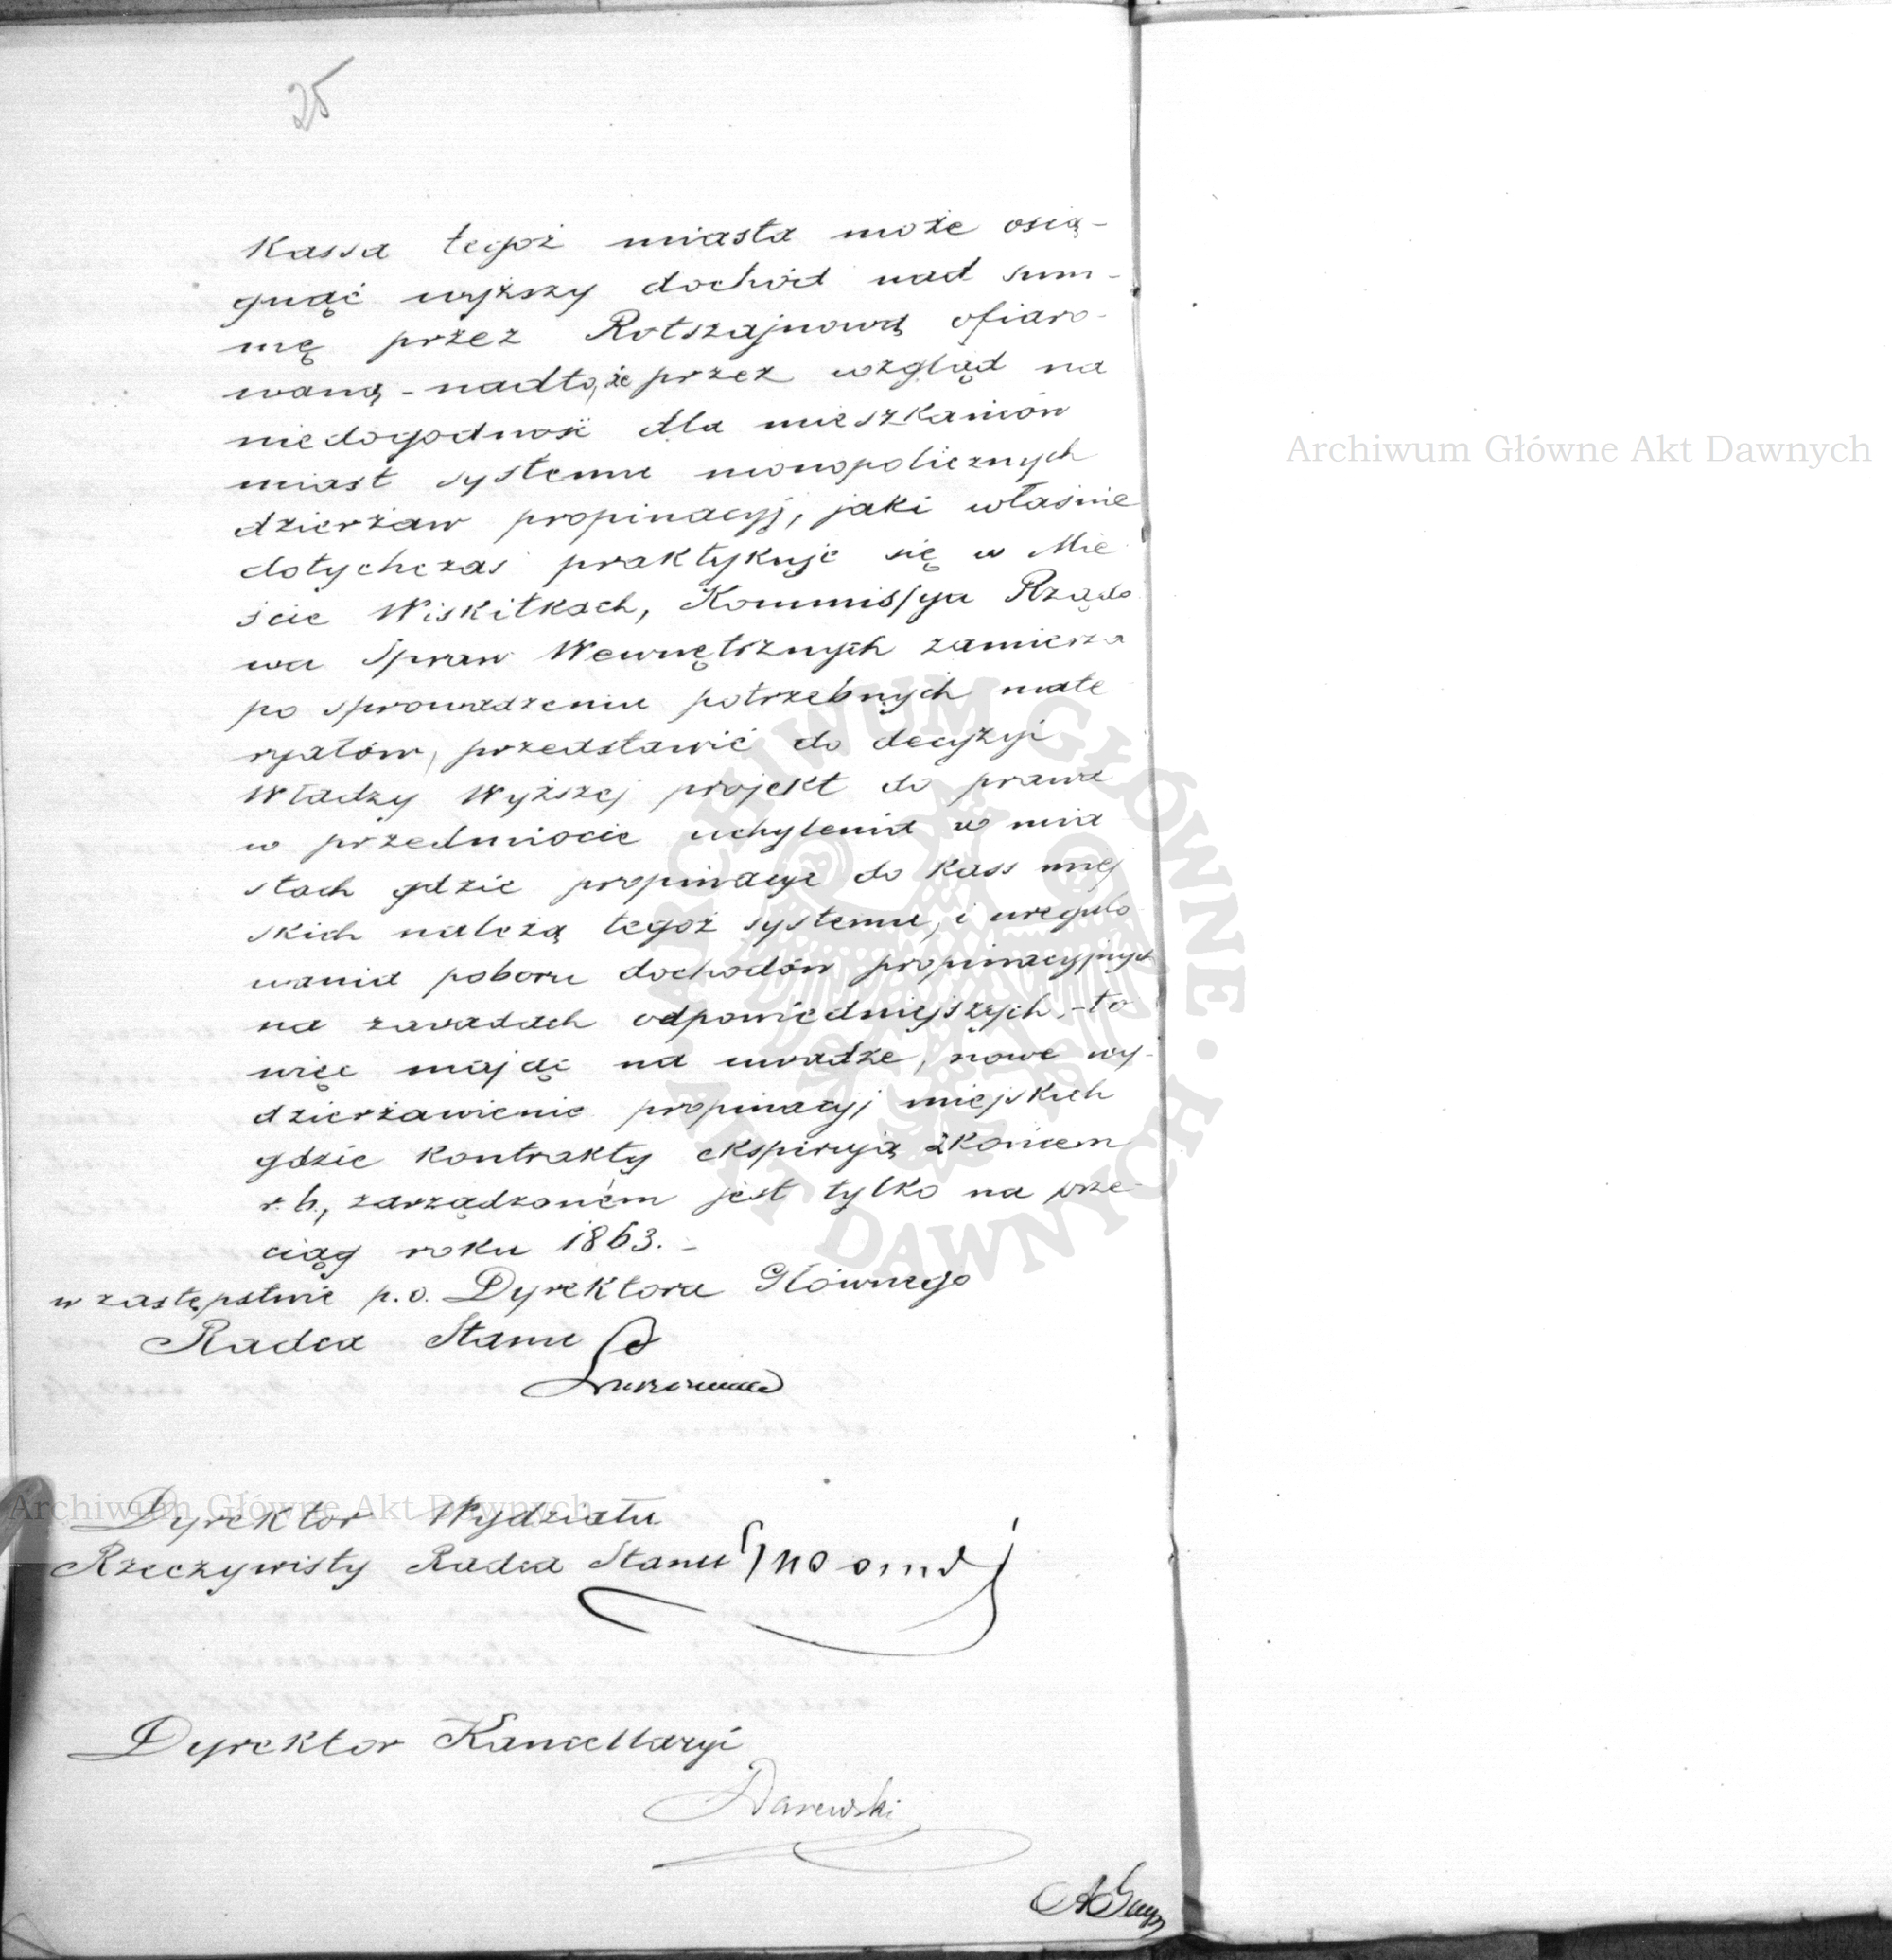 25
Kassa tegoż miasta może osią-
gnąć wyższy dochód nad sum-
mę przez Rotszajnową ofiaro-
waną - nadto, że przez wzgląd na
niedogodność dla mieszkańców
miast systemu monopolicznych
dzierżaw propinacyj, jaki właśnie
dotychczas praktykuje się w Mie
ście Wiskitkach, Kommissya Rządo
wa Spraw Wewnętrznych zamierza
po sprowadzeniu potrzebnych mate
ryałów, przedstawić do decyzyi
Władzy Wyższej projekt do prawa
w przedmiocie uchylenia w mia
stach gdzie propinacye do Kass miej
skich należą tegoż systemu, i uregulo
wania poboru dochodów propinacyjnych
na zasadach odpowiedniejszych, - to
więc mając na uwadze, nowe wy-
dzierżawienie propinacyj miejskich
gdzie Kontrakty ekspirują z końcem
r. b., zarządzonem jest tylko na prze-
ciąg roku 1863. -
w zastępstwie p. o. Dyrektora Głównego
Radca Stanu
Dyrektor Wydziału
Rzeczywisty Radca Stanu
Dyrektor Kancellaryi
Darewski
Archiwum Główne Akt Dawnych
Archiwum Główne Akt Dawnych
ARCHIWUM GŁÓWNE AKT DAWNYCH